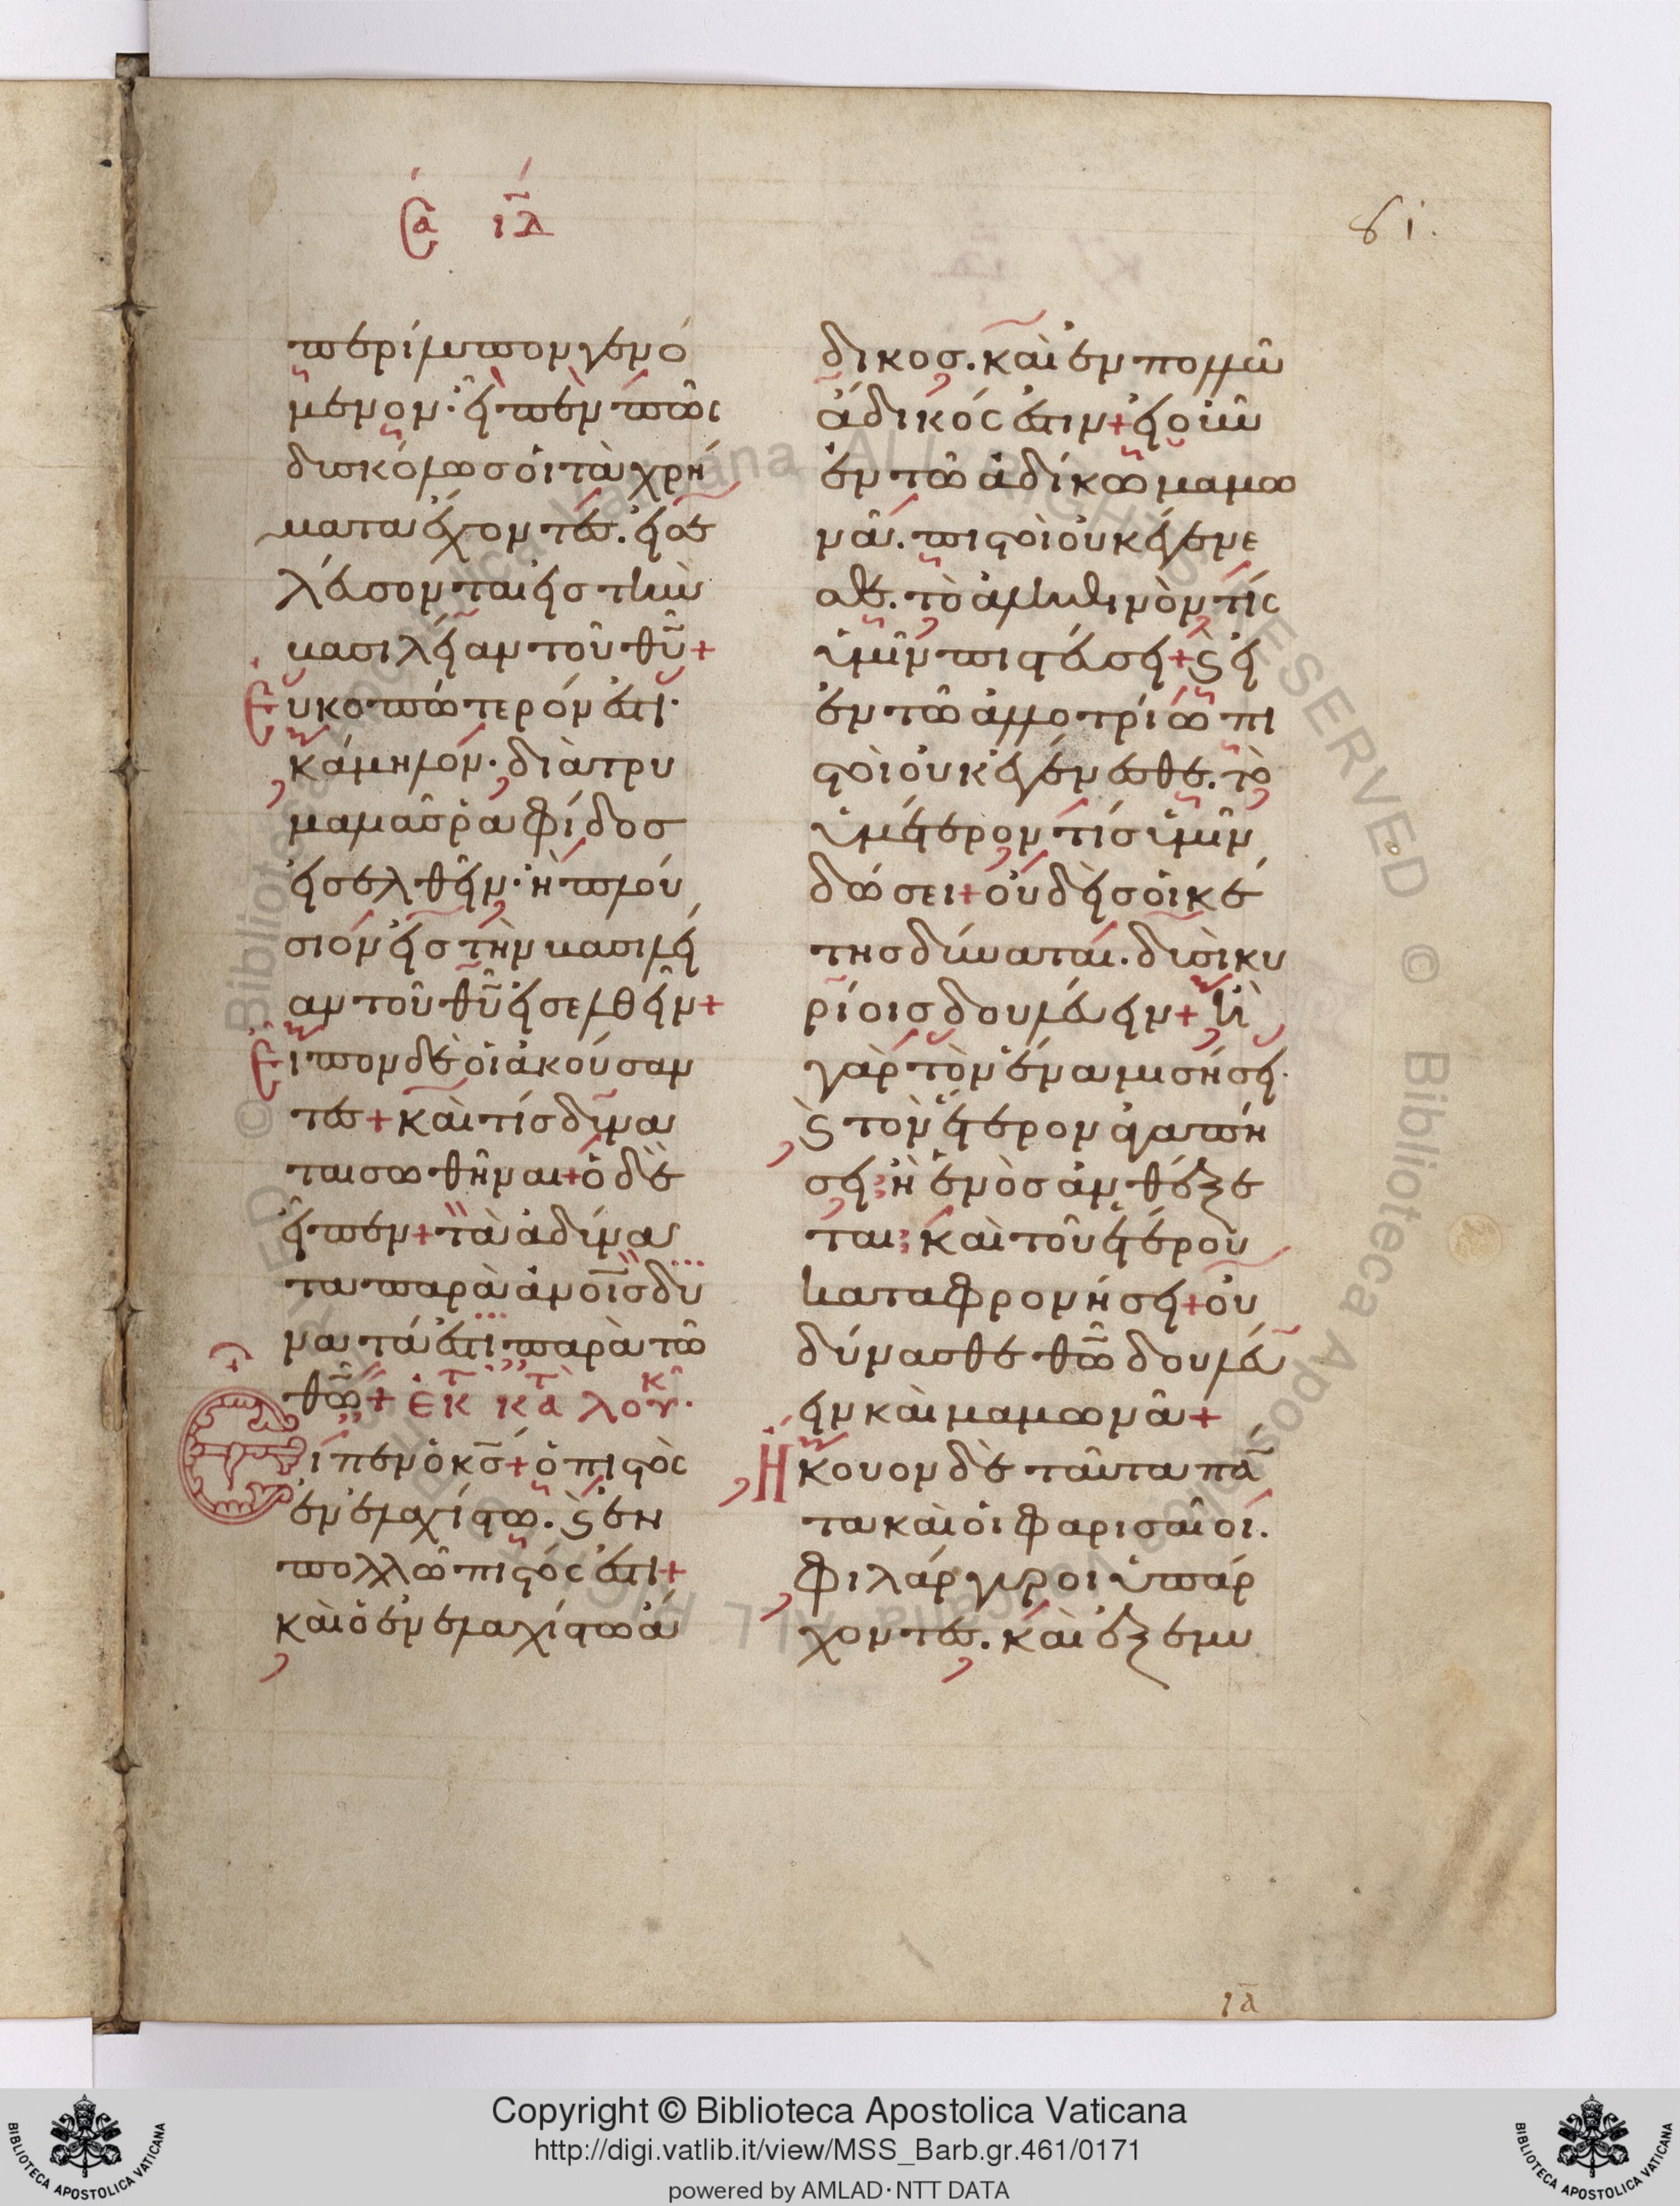 Σα ιᾱ
81.
περίλυπον γενό
μενον· εἶπεν πῶς
δυσκόλωσ οἱ τὰ χρή
ματα ἔχοντεσ. εἰσε
λεύσονται εἰσ τὴν
βασιλείαν τοῦ θῡ+
Εὐκοπώτερόν ἐστι·
κάμηλον· διὰ τρυ
μαλιᾶσ ῥαφίδοσ
εἰσελθεῖν· ἢ πλού
σιον εἰσ τὴν βασιλεί
αν τοῦ θῡ εἰσελθεῖν+
Εἶπον δὲ οἱ ἀκούσαν
τεσ+ καὶ τίσ δύνα
ται σωθῆναι+ ὁ δὲ
εἶπεν+ τὰ ἀδύνα
τα παρὰ ἀνοῑσ δυ
νατά ἐστι παρὰ τῶ
θω̄+ ἐκ τ κτὰ λουκ·
Εἶπεν ὁ κσ̄+ ὁ πιστὸς
ἐν ἐλαχίστω. ϗ ἐν
πολλῶ πιστός ἐστι+
καὶ ὁ ἐν ἐλαχίστω ἄ
δικοσ. καὶ ἐν πολλῶ
ἄδικός ἐστιν+ εἰ οὖν
ἐν τῶ ἀδίκω μαμω
νᾶ. πιστοὶ οὐκ ἐγένε
σθε. τὸ ἀληθινὸν τίς
ὑμῖν πιστεύσει+ ϗ εἰ
ἐν τῶ ἀλλοτρίω πι
στοὶ οὐκ ἐγένεσθε. τὸ
ὑμέτερον τίσ ὑμῖν
δώσει+ οὐδεὶσ οἰκέ
τησ δύναται. δυσὶ κυ
ρίοισ δουλεύειν+ ἢ
γὰρ τὸν ἕνα μισήσει·
ϗ τὸν ἕτερον ἀγαπή
σει· ἢ ἑνὸσ ἀνθέξε
ται· καὶ τοῦ ἑτέρου
καταφρονήσει+ οὐ
δύνασθε θω̄ δουλεύ
ειν καὶ μαμωνᾶ+
Ἤκουον δὲ ταῦτα πάν
τα καὶ οἱ φαρισαῖοι.
φιλάργυροι ὑπάρ
χοντεσ. καὶ ἐξεμυ
ιᾱ
Copyright © Biblioteca Apostolica Vaticana
http://digi.vatlib.it/view/MSS_Barb.gr.461/0171
powered by AMLAD·NTT DATA